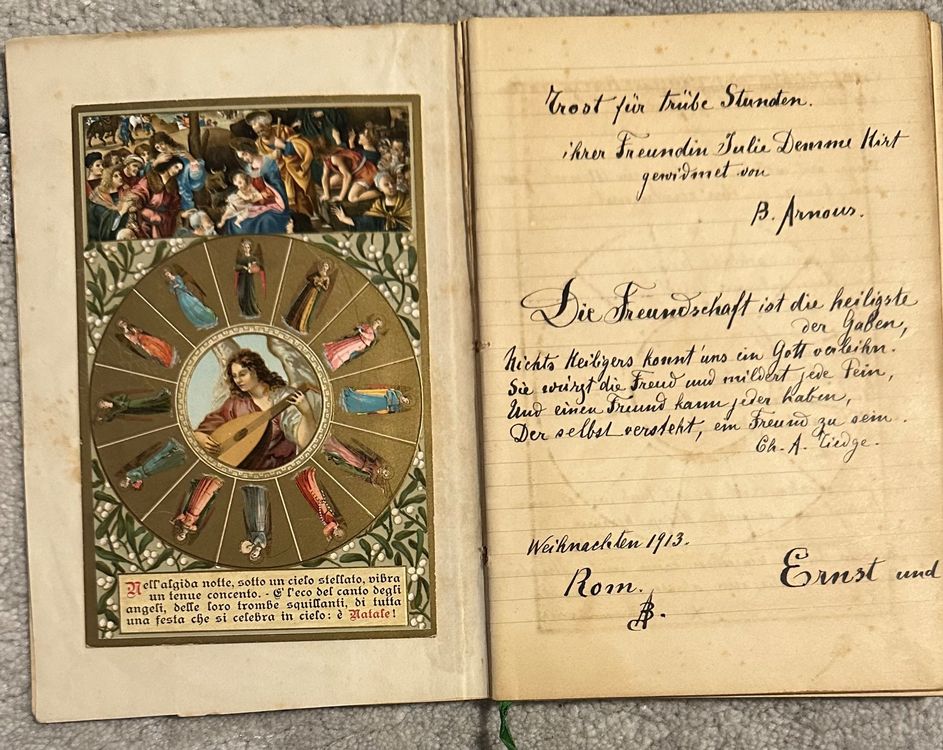 Nell'algida notte, sotto un cielo stellato, vibra
un tenue concento. - E' l'eco del canto degli
angeli, delle loro trombe squillanti, di tutta
una festa che si celebra in cielo: è Natale!
Trost für trübe Stunden.
ihrer Freundin Julie Demme Hirt
gewidmet von
B. Arnous.
Die Freundschaft ist die heiligste
der Gaben,
Nichts Heiligers konnt' uns ein Gott verleihn.
Sie würzt die Freud und mildert jede Pein,
Und einen Freund kann jeder haben,
Der selbst versteht, ein Freund zu sein.
Ch. A. Tiedge.
Weihnachten 1913.
Rom.
Ernst und
B.